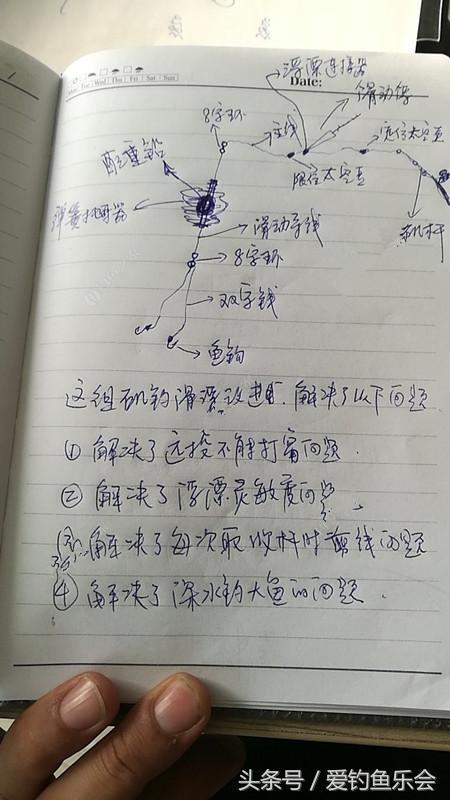 Mon Tue Wed Thu Fri Sat Sun
Date:
浮漂连接器
滑动漂
8字环
主线
定位太空豆
配重铅
限位太空豆
弹簧打窝器
滑动子线
矶杆
8字环
双子线
鱼钩
这组矶钓滑漂改进,解决了以下问题
① 解决了远投不能打窝问题.
② 解决了浮漂灵敏度问题
③ 解决了每次取收杆时剪线问题
④ 解决了深水钓大鱼的问题.
头条号 / 爱钓鱼乐会